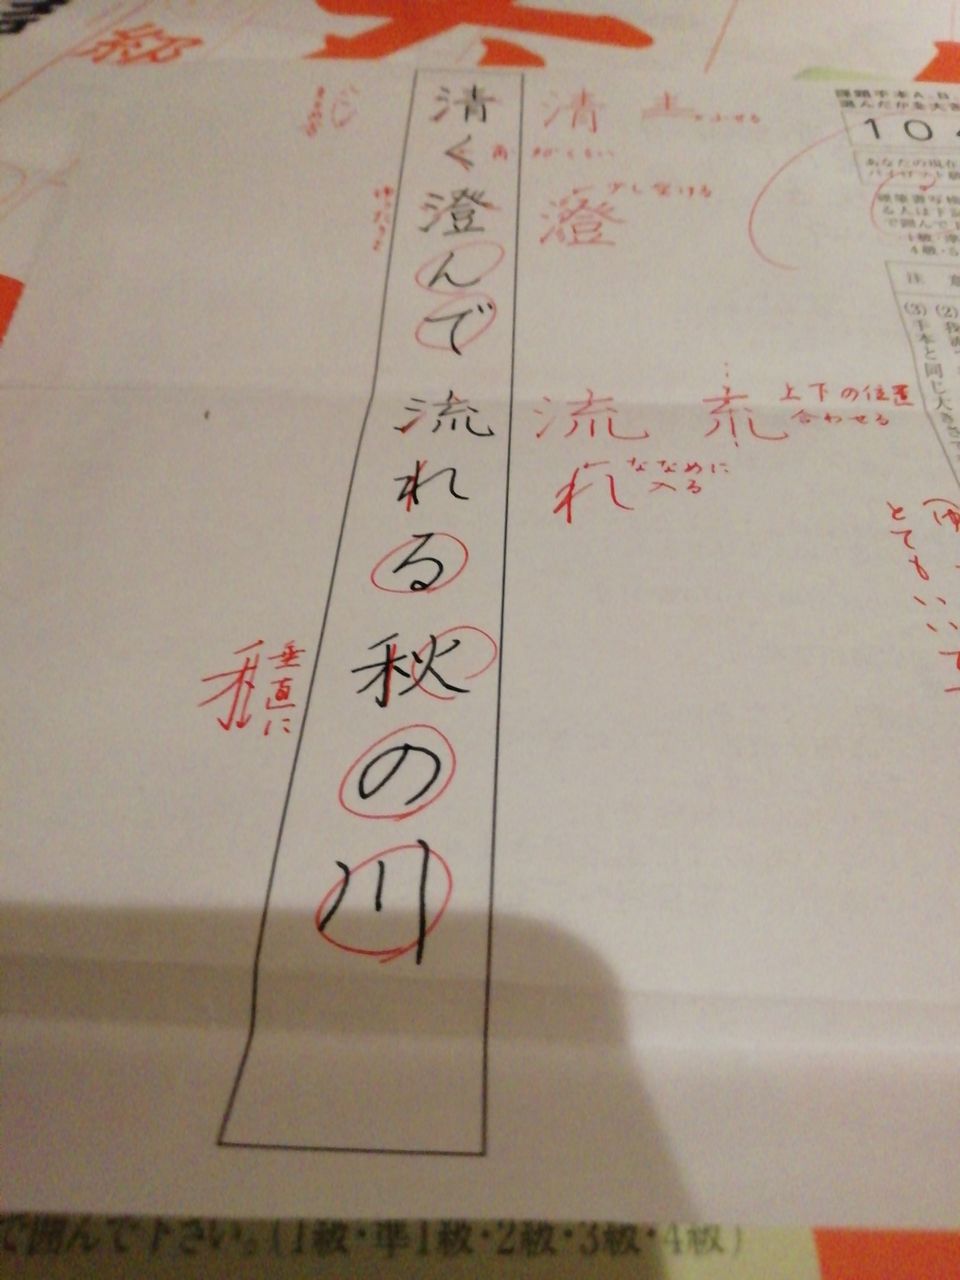 清く澄んで流れる秋の川
清
澄
少し空ける
流
上下の位置
合わせる
れ
ななめに
入る
垂直に
級
課題手本A.B.
選んだかを大
104
あなたの現在
硬筆書写検
る人は下記
で囲んで
1級・準
4級・5
注意
(3)
(2)
手本と同じ大きさで
とてもいいで
で囲んで下さい。(1級・準1級・2級・3級・4級)